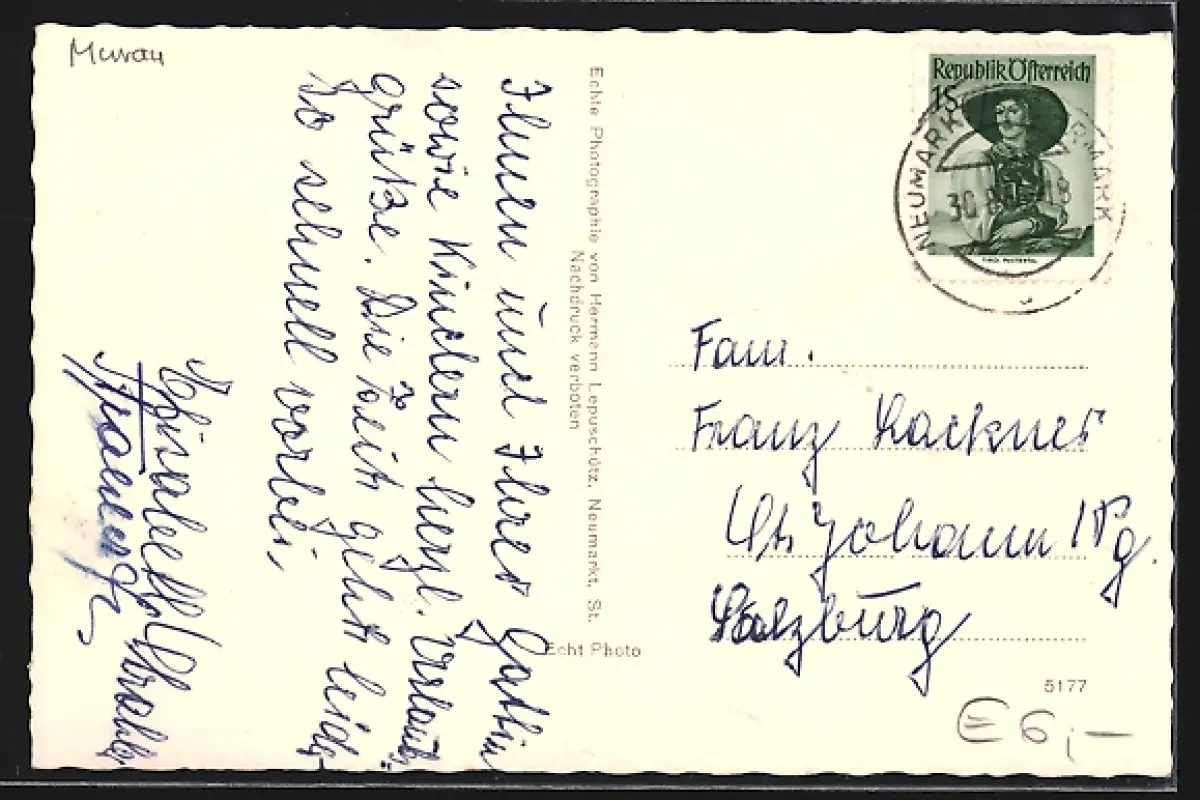 Murau
Ihnen und Ihrer Gattin
sowie Kindern herzl. Urlaubs-
grüße. Die Zeit geht leider
so schnell vorbei.
Echte Photographie von Hermann Lepuschütz, Neumarkt, St.
Nachdruck verboten
Echt Photo
Republik Österreich
1S
NEUMARKT
30.8.
18
Fam.
Franz Lackner
St. Johann i/Pg.
Salzburg
5177
E 6,-